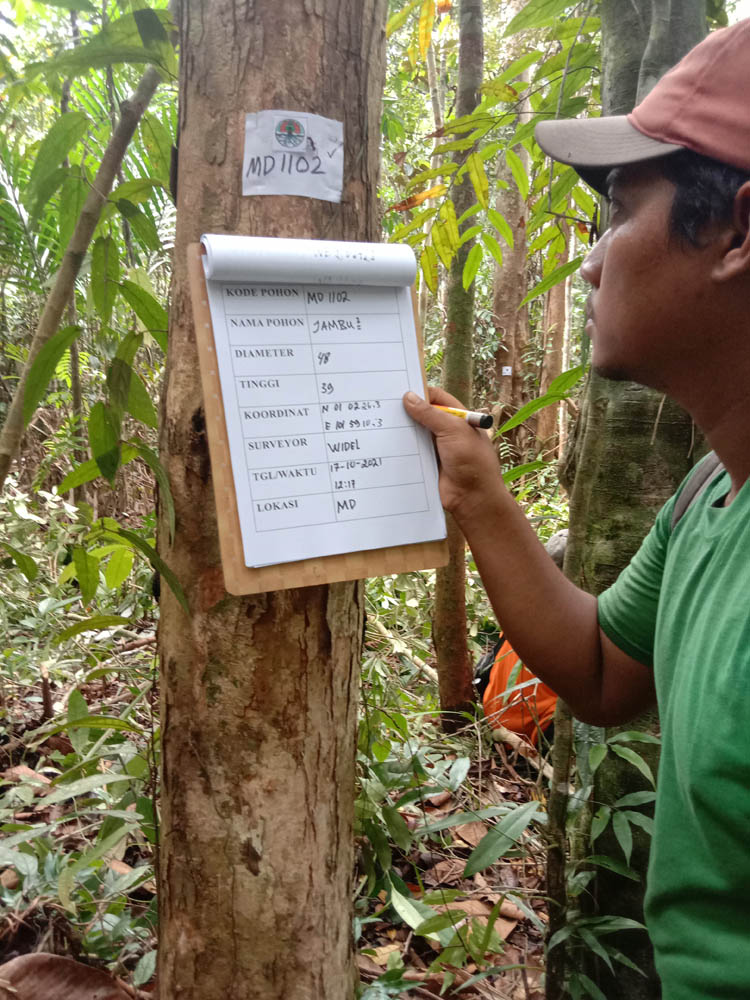 MD 1102
KODE POHON MD 1102
NAMA POHON JAMBU²
DIAMETER 48
TINGGI 39
KOORDINAT N 01 02 26.3
E 101 59 10.3
SURVEYOR WIDEL
TGL/WAKTU 17-10-2021
12:17
LOKASI MD